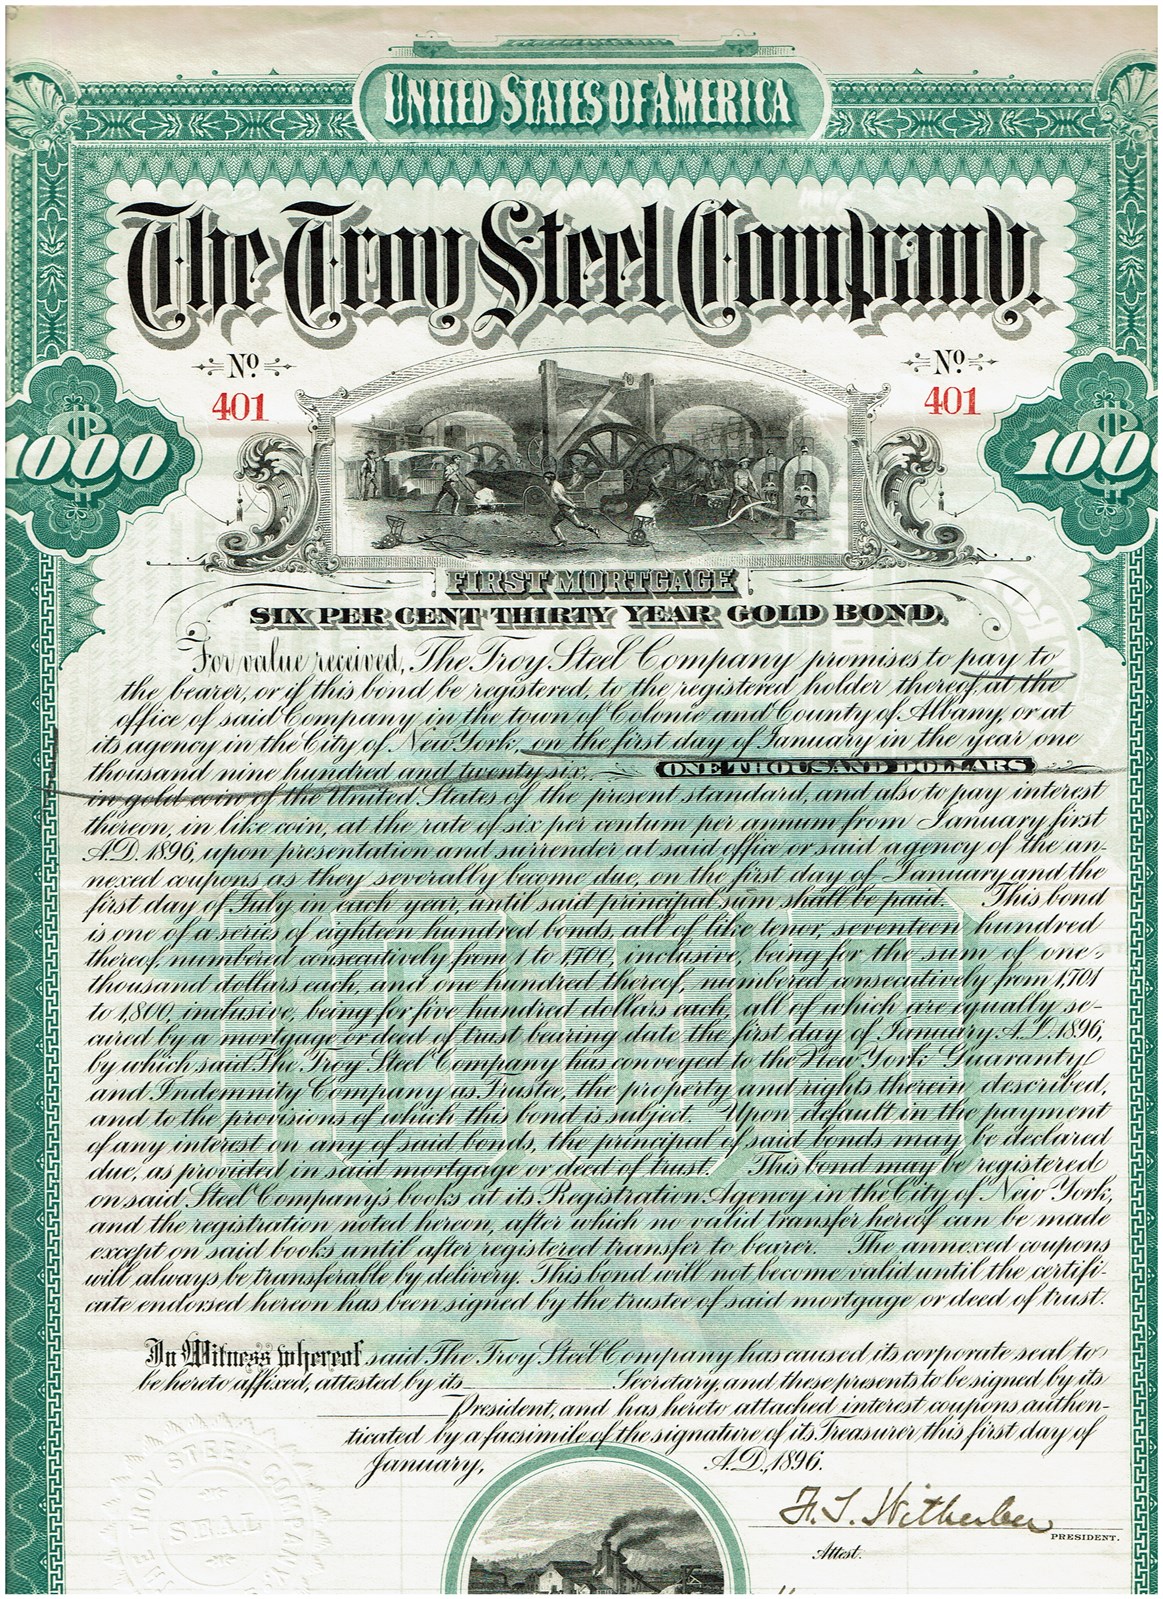 UNITED STATES OF AMERICA
The Troy Steel Company.
No
401
No
401
1000
100
FIRST MORTGAGE
SIX PER CENT THIRTY YEAR GOLD BOND.
For value received, The Troy Steel Company promises to pay to
the bearer, or if this bond be registered, to the registered holder thereof, at the
office of said Company in the town of Colonie and County of Albany, or at
its agency in the City of New York, on the first day of January in the year one
thousand nine hundred and twenty six, ONE THOUSAND DOLLARS
in gold coin of the United States of the present standard, and also to pay interest
thereon, in like coin, at the rate of six per centum per annum from January first
A.D. 1896, upon presentation and surrender at said office or said agency of the an-
nexed coupons as they severally become due, on the first day of January and the
first day of July in each year, until said principal sum shall be paid. This bond
is one of a series of eighteen hundred bonds, all of like tenor, seventeen hundred
thereof, numbered consecutively from 1 to 1,700, inclusive, being for the sum of one
thousand dollars each, and one hundred thereof, numbered consecutively from 1,701
to 1,800, inclusive, being for five hundred dollars each, all of which are equally se-
cured by a mortgage or deed of trust bearing date the first day of January, A.D. 1896,
by which said The Troy Steel Company has conveyed to the New York Guaranty
and Indemnity Company as Trustee, the property and rights therein described,
and to the provisions of which this bond is subject. Upon default in the payment
of any interest on any of said bonds, the principal of said bonds may be declared
due, as provided in said mortgage or deed of trust. This bond may be registered
on said Steel Company's books at its Registration Agency in the City of New York,
and the registration noted hereon, after which no valid transfer hereof can be made
except on said books until after registered transfer to bearer. The annexed coupons
will always be transferable by delivery. This bond will not become valid until the certifi-
cate endorsed hereon has been signed by the trustee of said mortgage or deed of trust.
In Witness whereof said The Troy Steel Company has caused its corporate seal to
be hereto affixed, attested by its Secretary, and these presents to be signed by its
President, and has hereto attached interest coupons authen-
ticated by a facsimile of the signature of its Treasurer this first day of
January, A.D., 1896.
TROY STEEL COMPANY
SEAL
PRESIDENT.
Attest.